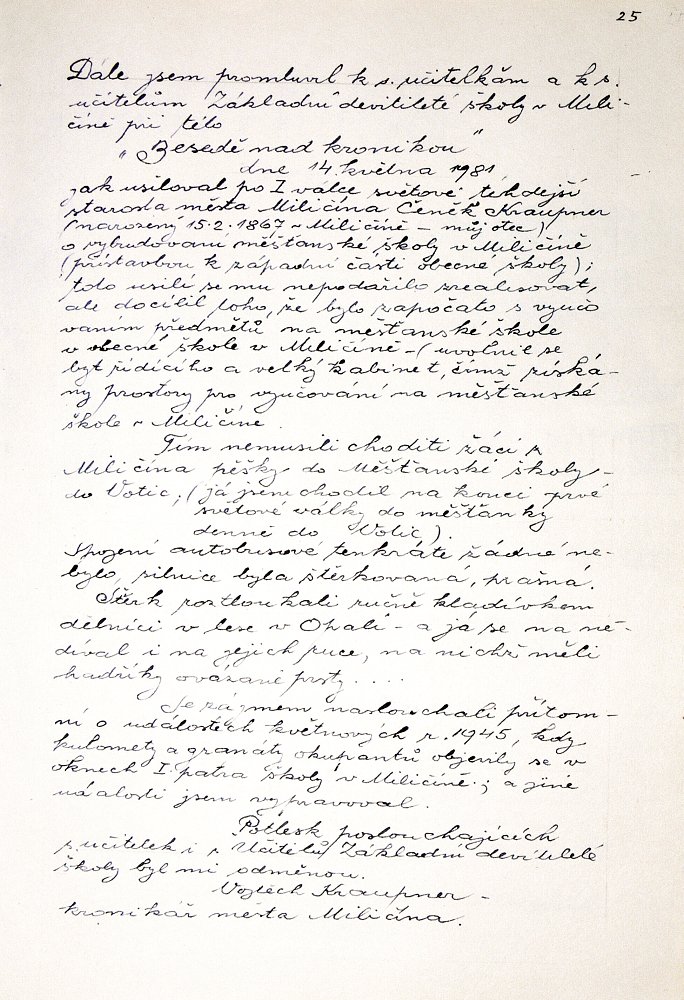 25
Dále jsem promluvil k s. učitelkám a k s.
učitelům Základní devítileté školy v Mili-
číně při této
„Besedě nad kronikou"
dne 14. května 1981,
jak usiloval po I válce světové tehdejší
starosta města Miličína Čeněk Kraupner
(narozený 15.2.1867 v Miličíně - můj otec)
o vybudování měšťanské školy v Miličíně
(přístavbou k západní části obecné školy);
toto úsilí se mu nepodařilo zrealisovat,
ale docílil toho, že bylo započato s vyučo
váním předmětů na měšťanské škole
v obecné škole v Miličíně - (uvolnil se
byt řídícího a velký kabinet, čímž získá-
ny prostory pro vyučování na měšťanské
škole v Miličíně.
Tím nemusili choditi žáci z
Miličína pěšky do Měšťanské školy -
do Votic; (já jsem chodil na konci prvé
světové války do měšťanky
denně do Votic).
Spojení autobusové tenkráte žádné ne-
bylo, silnice byla štěrkovaná, prašná.
Štěrk roztloukali ručně kladívkem
dělníci v lese v Ohalí - a já se na ně -
díval i na jejich ruce, na nichž měli
hadříky ovázané prsty. . . .
Se zájmem naslouchali přítom-
ní o událostech květnových r. 1945, kdy
kulomety a granáty okupantů objevily se v
oknech I. patra školy v Miličíně; a jiné
události jsem vypravoval.
Potlesk poslouchajících
s. učitelek i s. Učitelů Základní devítileté
školy byl mi odměnou.
Vojtěch Kraupner -
kronikář města Miličína.